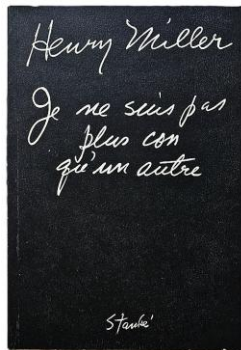 Henry Miller
Je ne suis pas
plus con
qu'un autre
Stanké